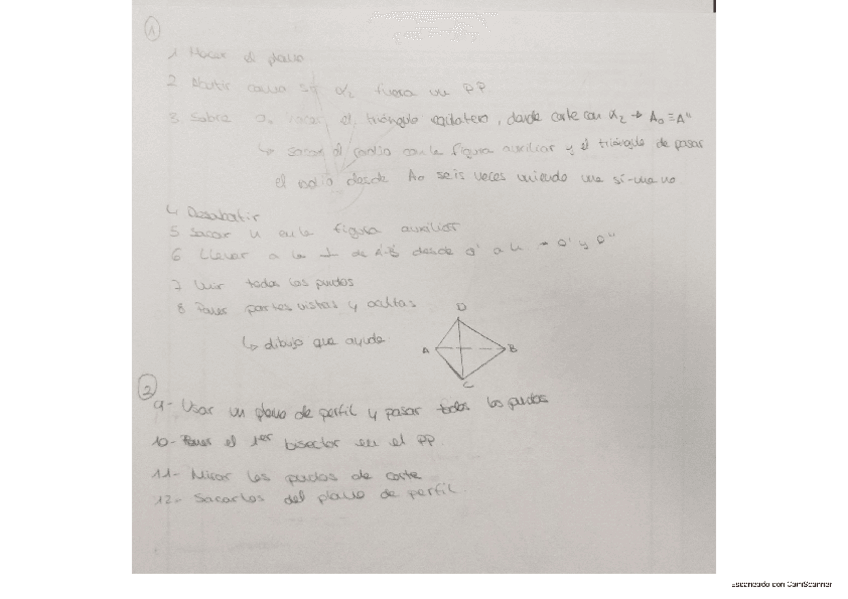 1
1 Hacer el plano
2 Abatir como si α₂ fuera un PP
3. Sobre sacar el triángulo equilátero, donde corte con α₂ → A₀ ≡ A"
↳ sacar el radio con la figura auxiliar y el triángulo de pasar
el radio desde A₀ seis veces uniendo una sí-una no
4 Desabatir
5 Sacar h en la figura auxiliar
6 Llevar a la ⊥ de desde O' a h → D' y D"
7 Unir todos los puntos
8 Poner partes vistas y ocultas
↳ dibujo que ayude
D
A
B
C
2
9- Usar un plano de perfil y pasar todos los puntos
10- Poner el 1er bisector en el PP.
11- Mirar los puntos de corte
12- Sacarlos del plano de perfil.
Escaneado con CamScanner